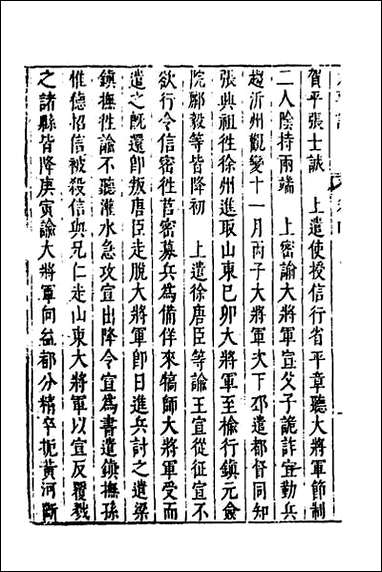 賀平張士誠　上遣使授信行省平章聽大將軍節制
二人陰持兩端　上密諭大將軍宣父子詭詐宜勤兵
趨沂州觀變十一月丙子大將軍次下邳遣都督同知
張興祖徃徐州進取山東巳卯大將軍至榆行鎮元僉
院郿毅等皆降初　上遣徐唐臣等諭王宣從征宣不
欲行令信密徃莒密募兵為備佯來犒師大將軍受而
遣之既還卽叛唐臣走脫大將軍卽日進兵討之遣梁
鎮撫徃諭不聽灌水急攻宣出降令宣為書遣鎮撫孫
惟德招信被殺信與兄仁走山東大將軍以宣反覆戮
之諸縣皆降庚寅諭大將軍向益都分精卒扼黃河斷